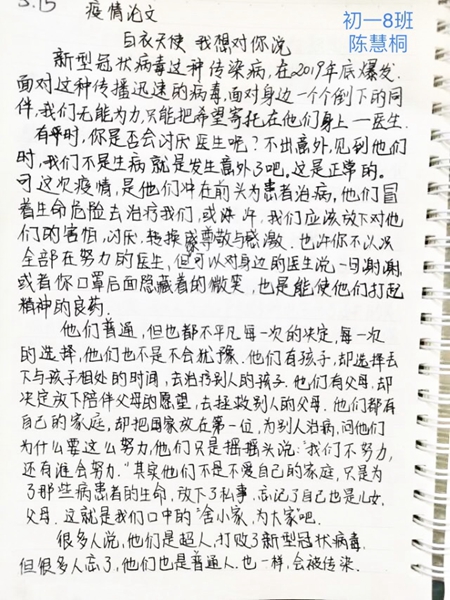 3.15
疫情论文
初一8班
陈慧桐
白衣天使 我想对你说
新型冠状病毒这种传染病,在2019年底爆发.
面对这种传播迅速的病毒,面对身边一个个倒下的同
伴,我们无能为力,只能把希望寄托在他们身上—医生.
有时,你是否会讨厌医生呢?不出意外,见到他们
时,我们不是生病就是发生意外了吧,这是正常的.
可这次疫情,是他们冲在前头为患者治病,他们冒
着生命危险去治疗我们,或许,我们应该放下对他
们的害怕,讨厌,转换成尊敬与感激.也许你不认识
全部在努力的医生,但可以对身边的医生说一句谢谢,
或者你口罩后面隐藏着的微笑,也是能使他们打起
精神的良药.
他们普通,但也都不平凡每一次的决定,每一次
的选择,他们也不是不会犹豫.他们有孩子,却选择丢
下与孩子相处的时间,去治疗别人的孩子.他们有父母,却
决定放下陪伴父母的愿望,去拯救别人的父母.他们都有
自己的家庭,却把国家放在第一位,为别人治病,问他们
为什么要这么努力,他们只是摇摇头说:"我们不努力,
还有谁会努力."其实他们不是不爱自己的家庭,只是为
了那些病患者的生命,放下了私事,忘记了自己也是儿女,
父母.这就是我们口中的"舍小家,为大家"吧.
很多人说,他们是超人,打败了新型冠状病毒.
但很多人忘了,他们也是普通人.也一样,会被传染.